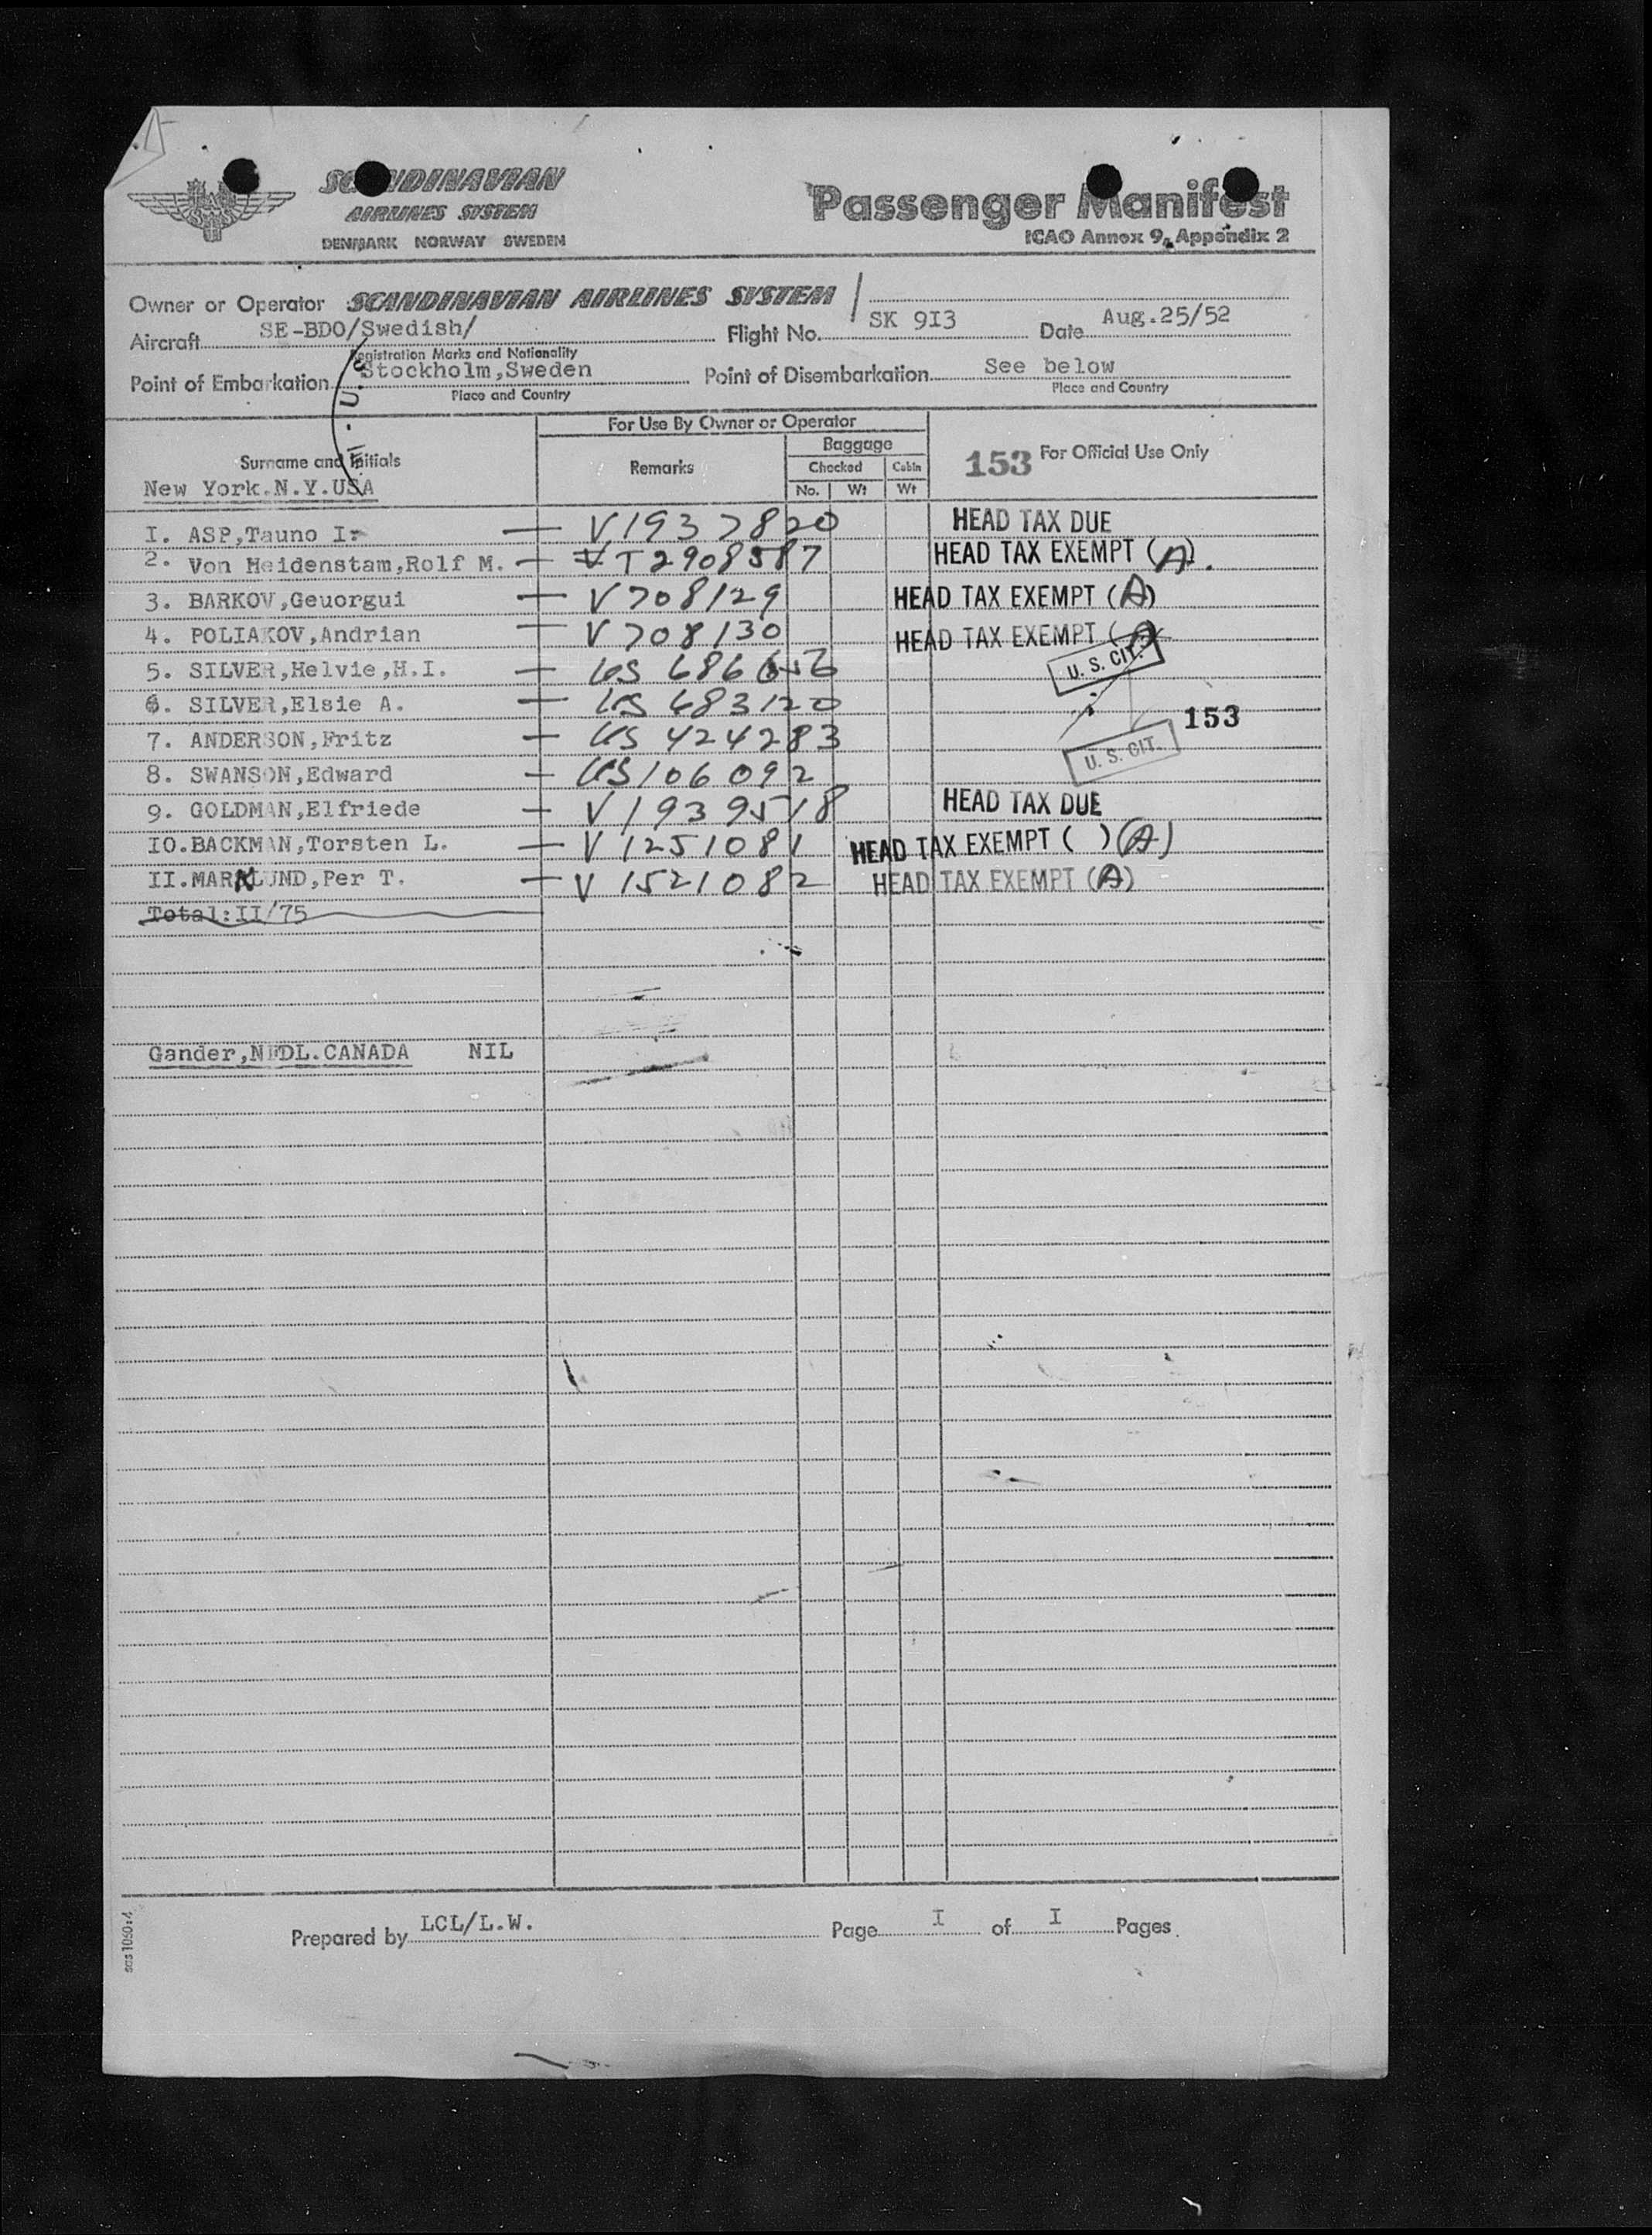 SCANDINAVIAN
AIRLINES SYSTEM
DENMARK NORWAY SWEDEN
Passenger Manifest
ICAO Annex 9, Appendix 2
Owner or Operator SCANDINAVIAN AIRLINES SYSTEM
Aircraft SE-BDO/Swedish/ Flight No. SK 9I3 Date Aug.25/52
Registration Marks and Nationality
Point of Embarkation Stockholm,Sweden Point of Disembarkation See below
Place and Country Place and Country
For Use By Owner or Operator
Surname and Initials Remarks Baggage 153 For Official Use Only
Checked Cabin
No. Wt Wt
New York.N.Y.USA
I. ASP,Tauno I. — V1937820 HEAD TAX DUE
2. Von Heidenstam,Rolf M. — VT2908587 HEAD TAX EXEMPT (A).
3. BARKOV,Geuorgui — V708129 HEAD TAX EXEMPT (A)
4. POLIAKOV,Andrian — V708130 HEAD TAX EXEMPT (A)
U. S. CIT.
5. SILVER,Helvie,H.I. — US 686656
6. SILVER,Elsie A. — US 483120
153
7. ANDERSON,Fritz — US 424283
U. S. CIT.
8. SWANSON,Edward — US106092
9. GOLDMAN,Elfriede — V1939518 HEAD TAX DUE
IO.BACKMAN,Torsten L. — V1251081 HEAD TAX EXEMPT ( ) (A)
II.MARKLUND,Per T. — V 1521082 HEAD TAX EXEMPT (A)
Total:II/75
Gander,NFDL.CANADA NIL
Prepared by LCL/L.W. Page I of I Pages
sas 1060:4